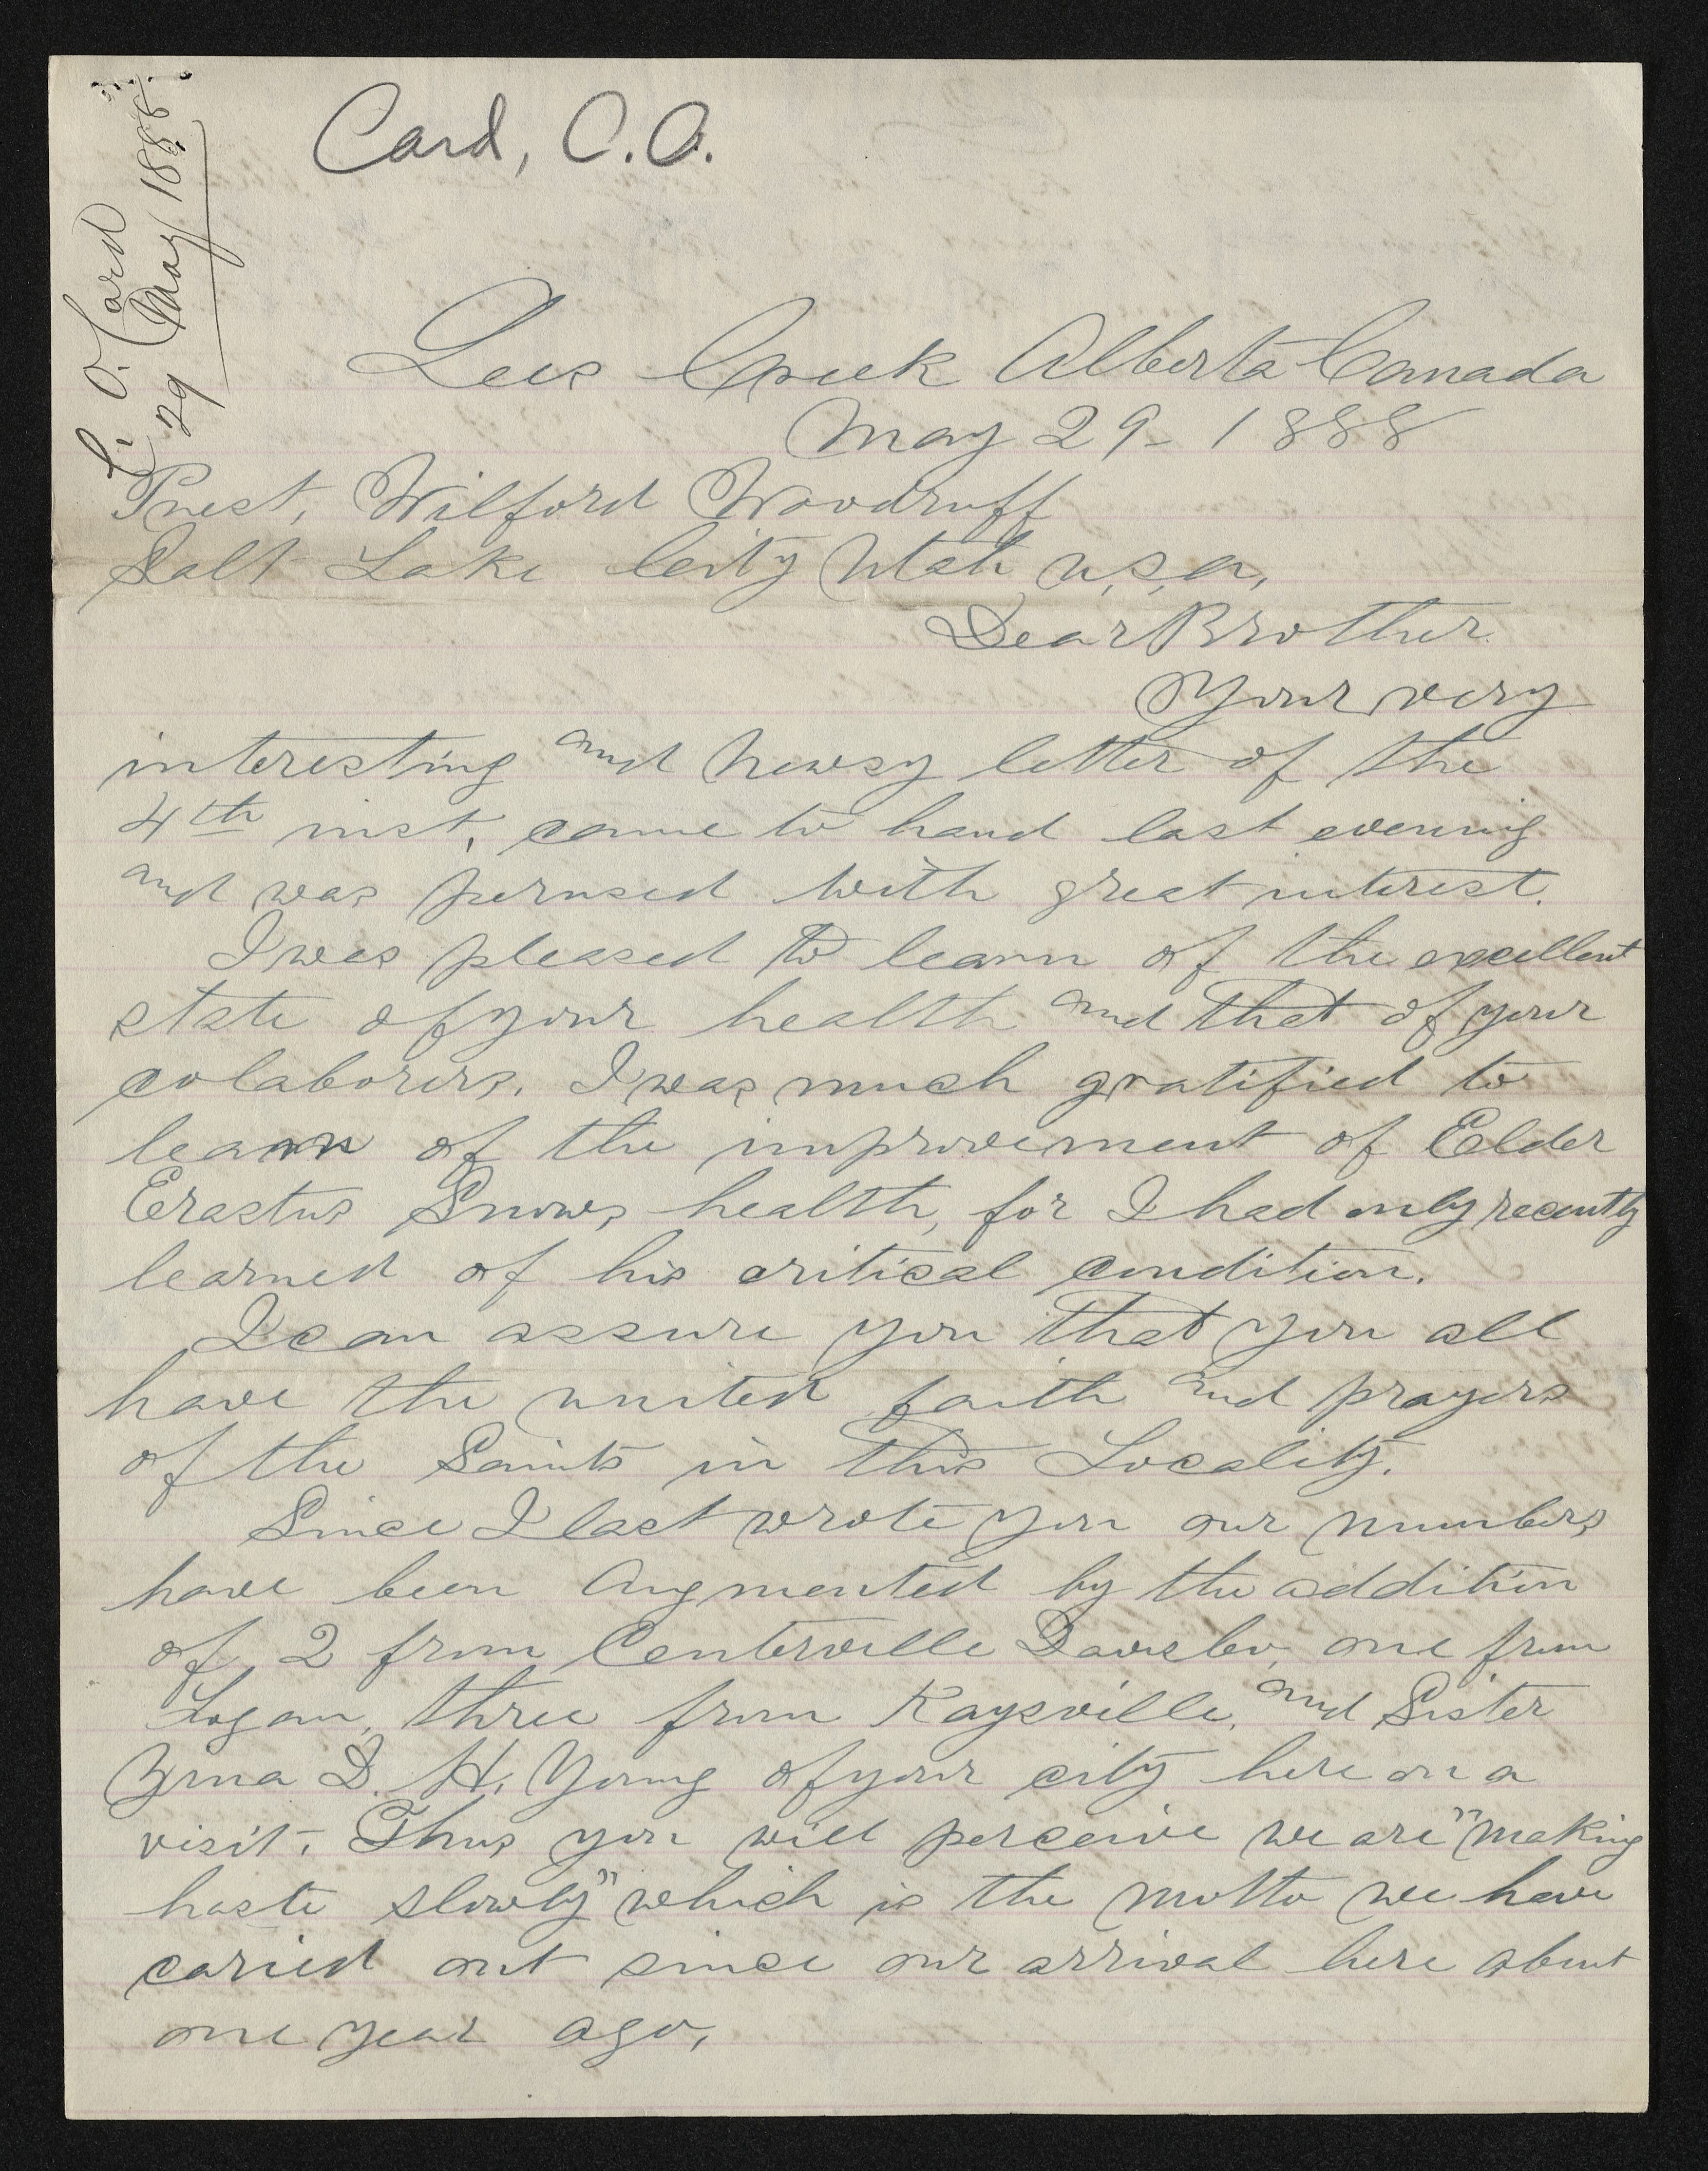 C. O. Card
29 May 1888.
Card, C.O.
Lees Creek Alberta Canada
May 29- 1888
Prest, Wilford Woodruff
Salt Lake City Utah U,S,A,
Dear Brother.
Your very
interesting and Newsy letter of the
4th inst, came to hand last evening
and was perused with great interest.
I was pleased to learn of the excellent
state of your health and that of your
colaborers. I was much gratified to
learn of the improvement of Elder
Erastus Snows health, for I had only recently
learned of his critical condition.
I can assure you that you all
have the united faith and prayers
of the Saints in this Locality.
Since I last wrote you our numbers
have been Augmented by the addition
of 2 from Centerville Davis Co, one from
Logan, three from Kaysville, and Sister
Zina D. H. Young of your city here on a
visit. Thus you will perceive we are "making
haste slowly" which is the motto we have
caried out since our arrival here about
one year ago,